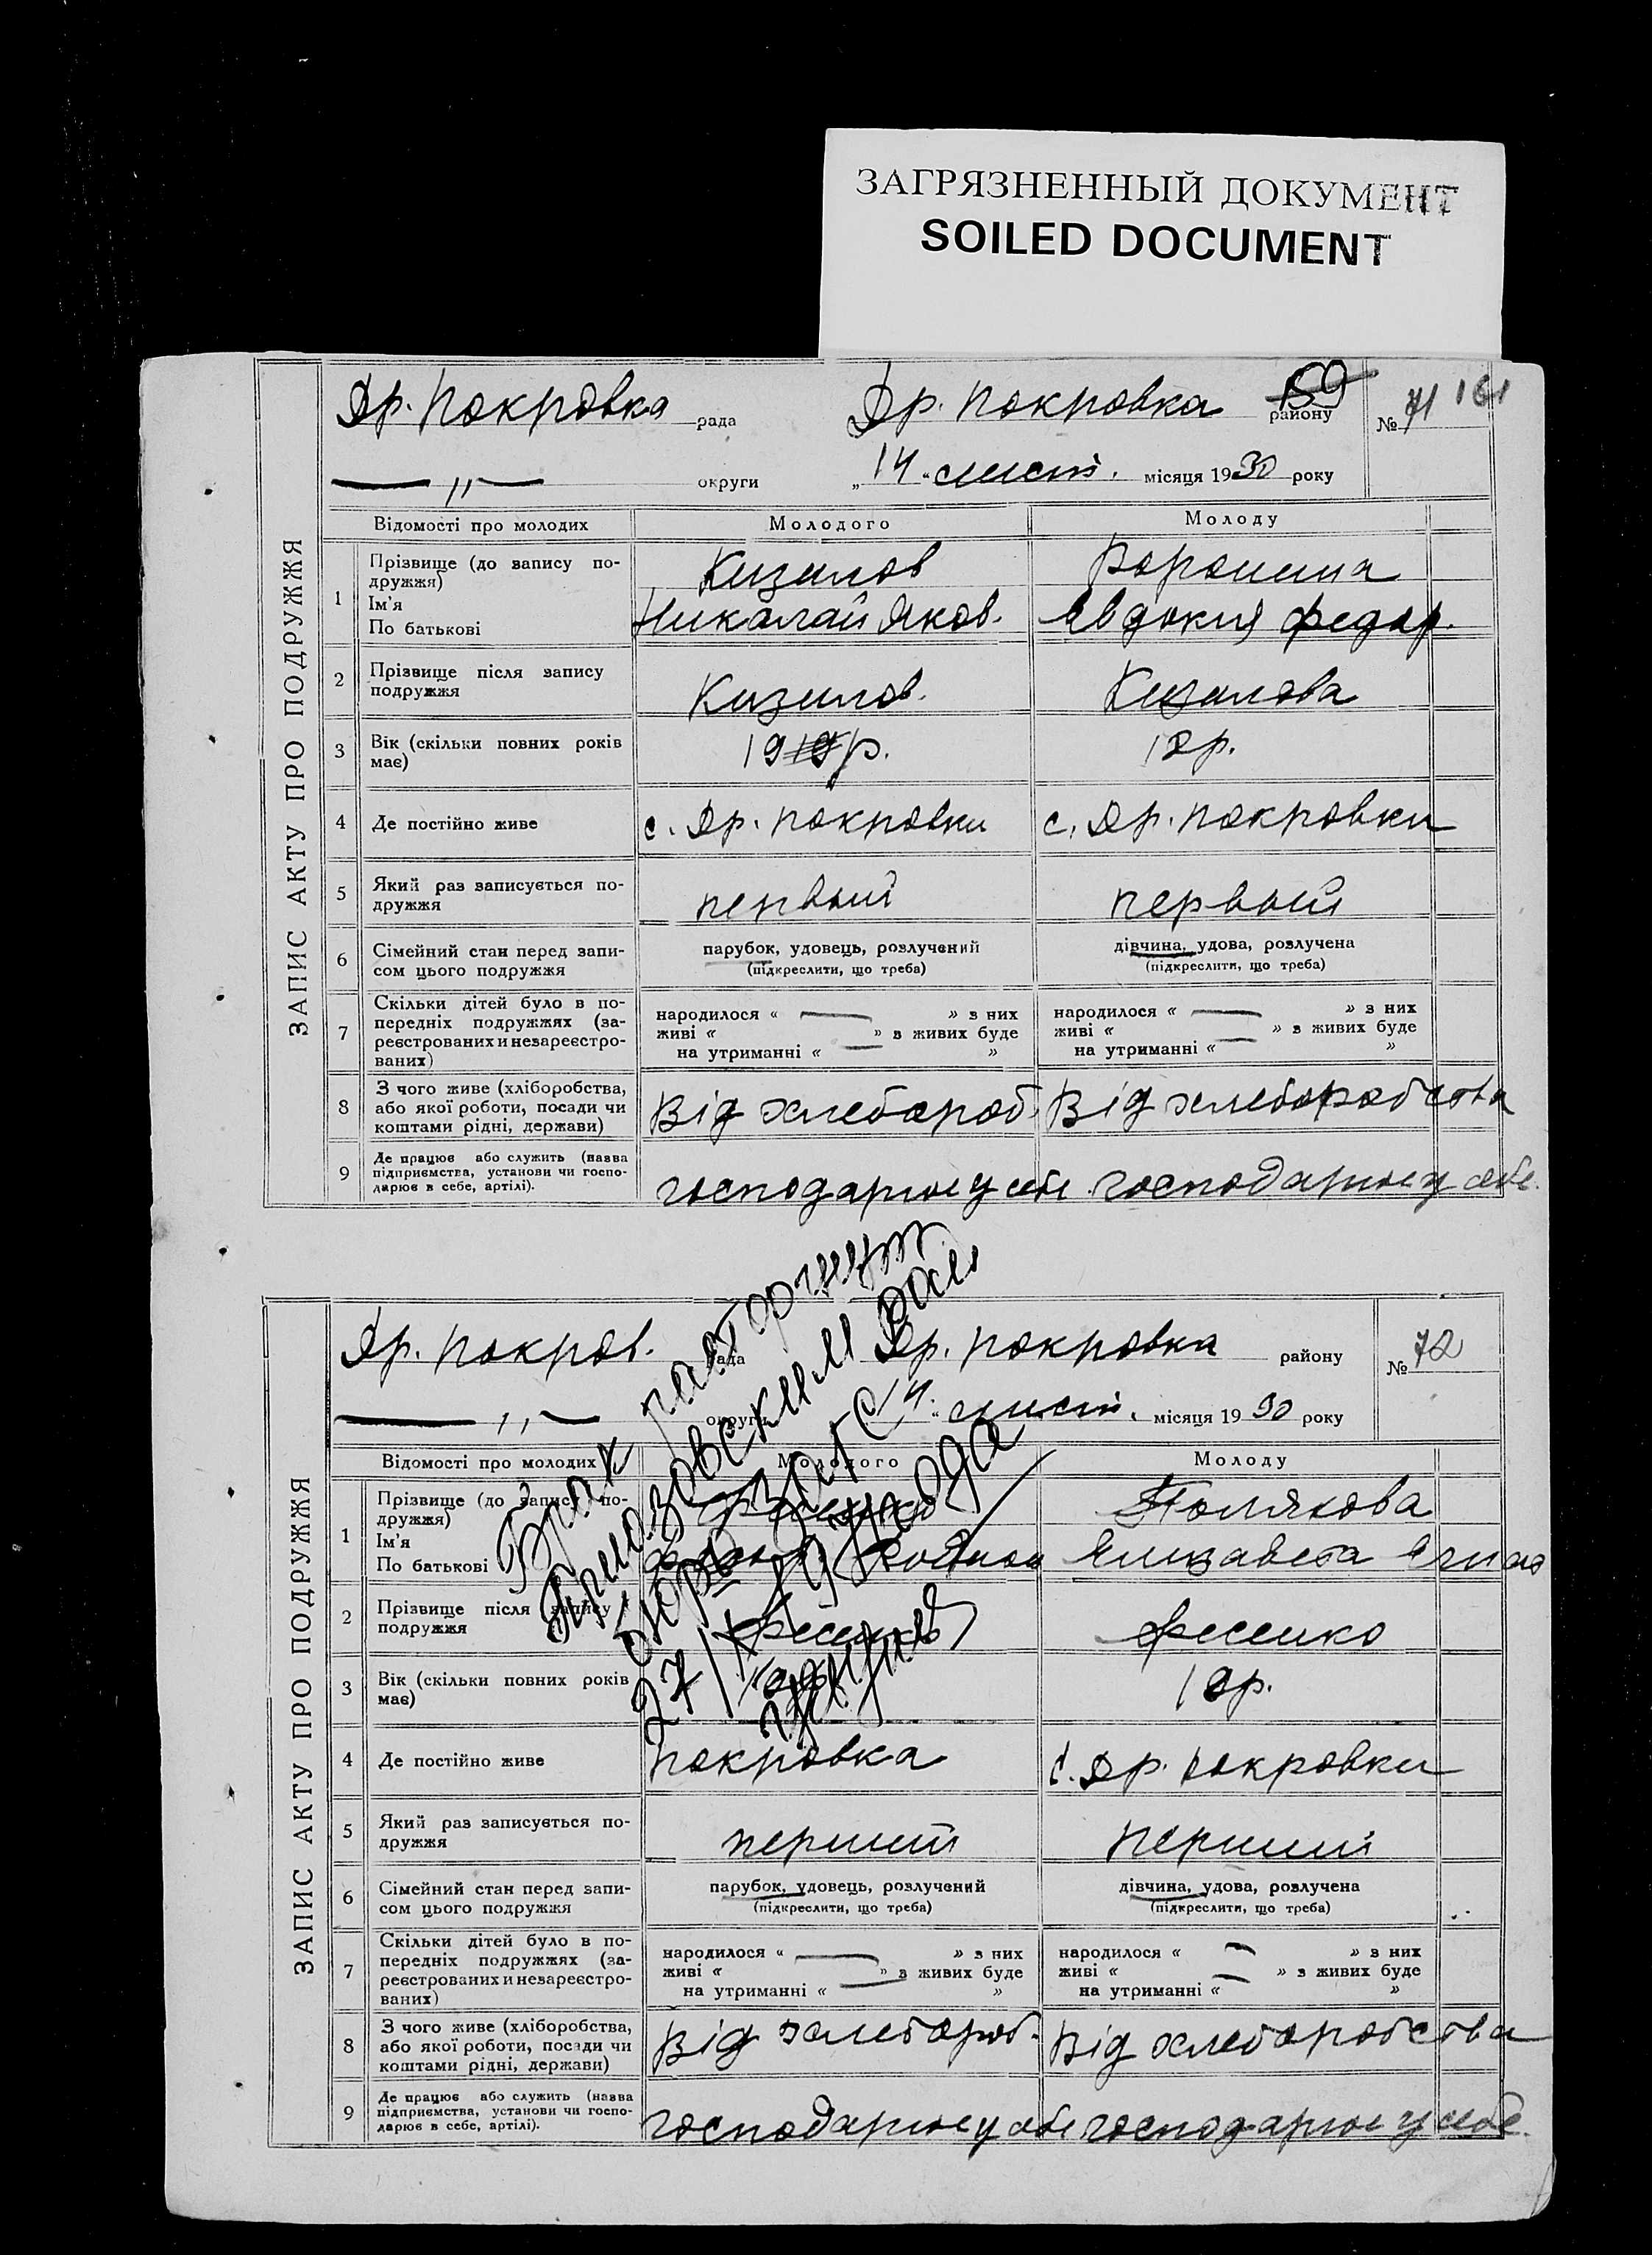 ЗАГРЯЗНЕННЫЙ ДОКУМЕНТ
SOILED DOCUMENT
ЗАПИС АКТУ ПРО ПОДРУЖЖЯ
Др. Покровка рада Др. Покровка району № 71 161
— " — округи „14 " лист. місяця 1930 року
Відомості про молодих Молодого Молоду
1 Прізвище (до запису по-
дружжя)
Ім'я
По батькові
Кизилов
Николай Яков.
Воронина
Евдокия Федор.
2 Прізвище після запису
подружжя
Кизилов. Кизилова
3 Вік (скільки повних років
має)
19 р. 18р.
4 Де постійно живе с. Др. Покровки с. Др. Покровки
5 Який раз записується по-
дружжя
первый первый
6 Сімейний стан перед запи-
сом цього подружжя
парубок, удовець, розлучений
(підкреслити, що треба)
дівчина, удова, розлучена
(підкреслити, що треба)
7 Скільки дітей було в по-
передніх подружжях (за-
реєстрованих и незареєстро-
ваних)
народилося « — » з них
живі « » в живих буде
на утриманні « — »
народилося « — » з них
живі « » в живих буде
на утриманні « — »
8 З чого живе (хліборобства,
або якої роботи, посади чи
коштами рідні, держави)
Від хлебороб. Від хлеборобства
9 Де працює або служить (назва
підприємства, установи чи госпо-
дарює в себе, артілі).
господарює у себе господарює у себе.
ЗАПИС АКТУ ПРО ПОДРУЖЖЯ
Др. Покров. рада Др. Покровка району № 72
— " — округи 14 " лист. місяця 1930 року
Брак расторгнут
Приазовским Рай
бюро ЗАГС
27/
года
Відомості про молодих Молодого Молоду
1 Прізвище (до запису по-
дружжя)
Ім'я
По батькові
Полякова
Елизавета
2 Прізвище після запису
подружжя
Фесенко Фесенко
3 Вік (скільки повних років
має)
18р.
4 Де постійно живе Покровка с. Др. Покровки
5 Який раз записується по-
дружжя
перший перший
6 Сімейний стан перед запи-
сом цього подружжя
парубок, удовець, розлучений
(підкреслити, що треба)
дівчина, удова, розлучена
(підкреслити, що треба)
7 Скільки дітей було в по-
передніх подружжях (за-
реєстрованих и незареєстро-
ваних)
народилося « — » з них
живі « » в живих буде
на утриманні « — »
народилося « — » з них
живі « » з живих буде
на утриманні « — »
8 З чого живе (хліборобства,
або якої роботи, посади чи
коштами рідні, держави)
Від хлебороб. Від хлеборобства
9 Де працює або служить (назва
підприємства, установи чи госпо-
дарює в себе, артілі).
господарює у себе господарює у себе.